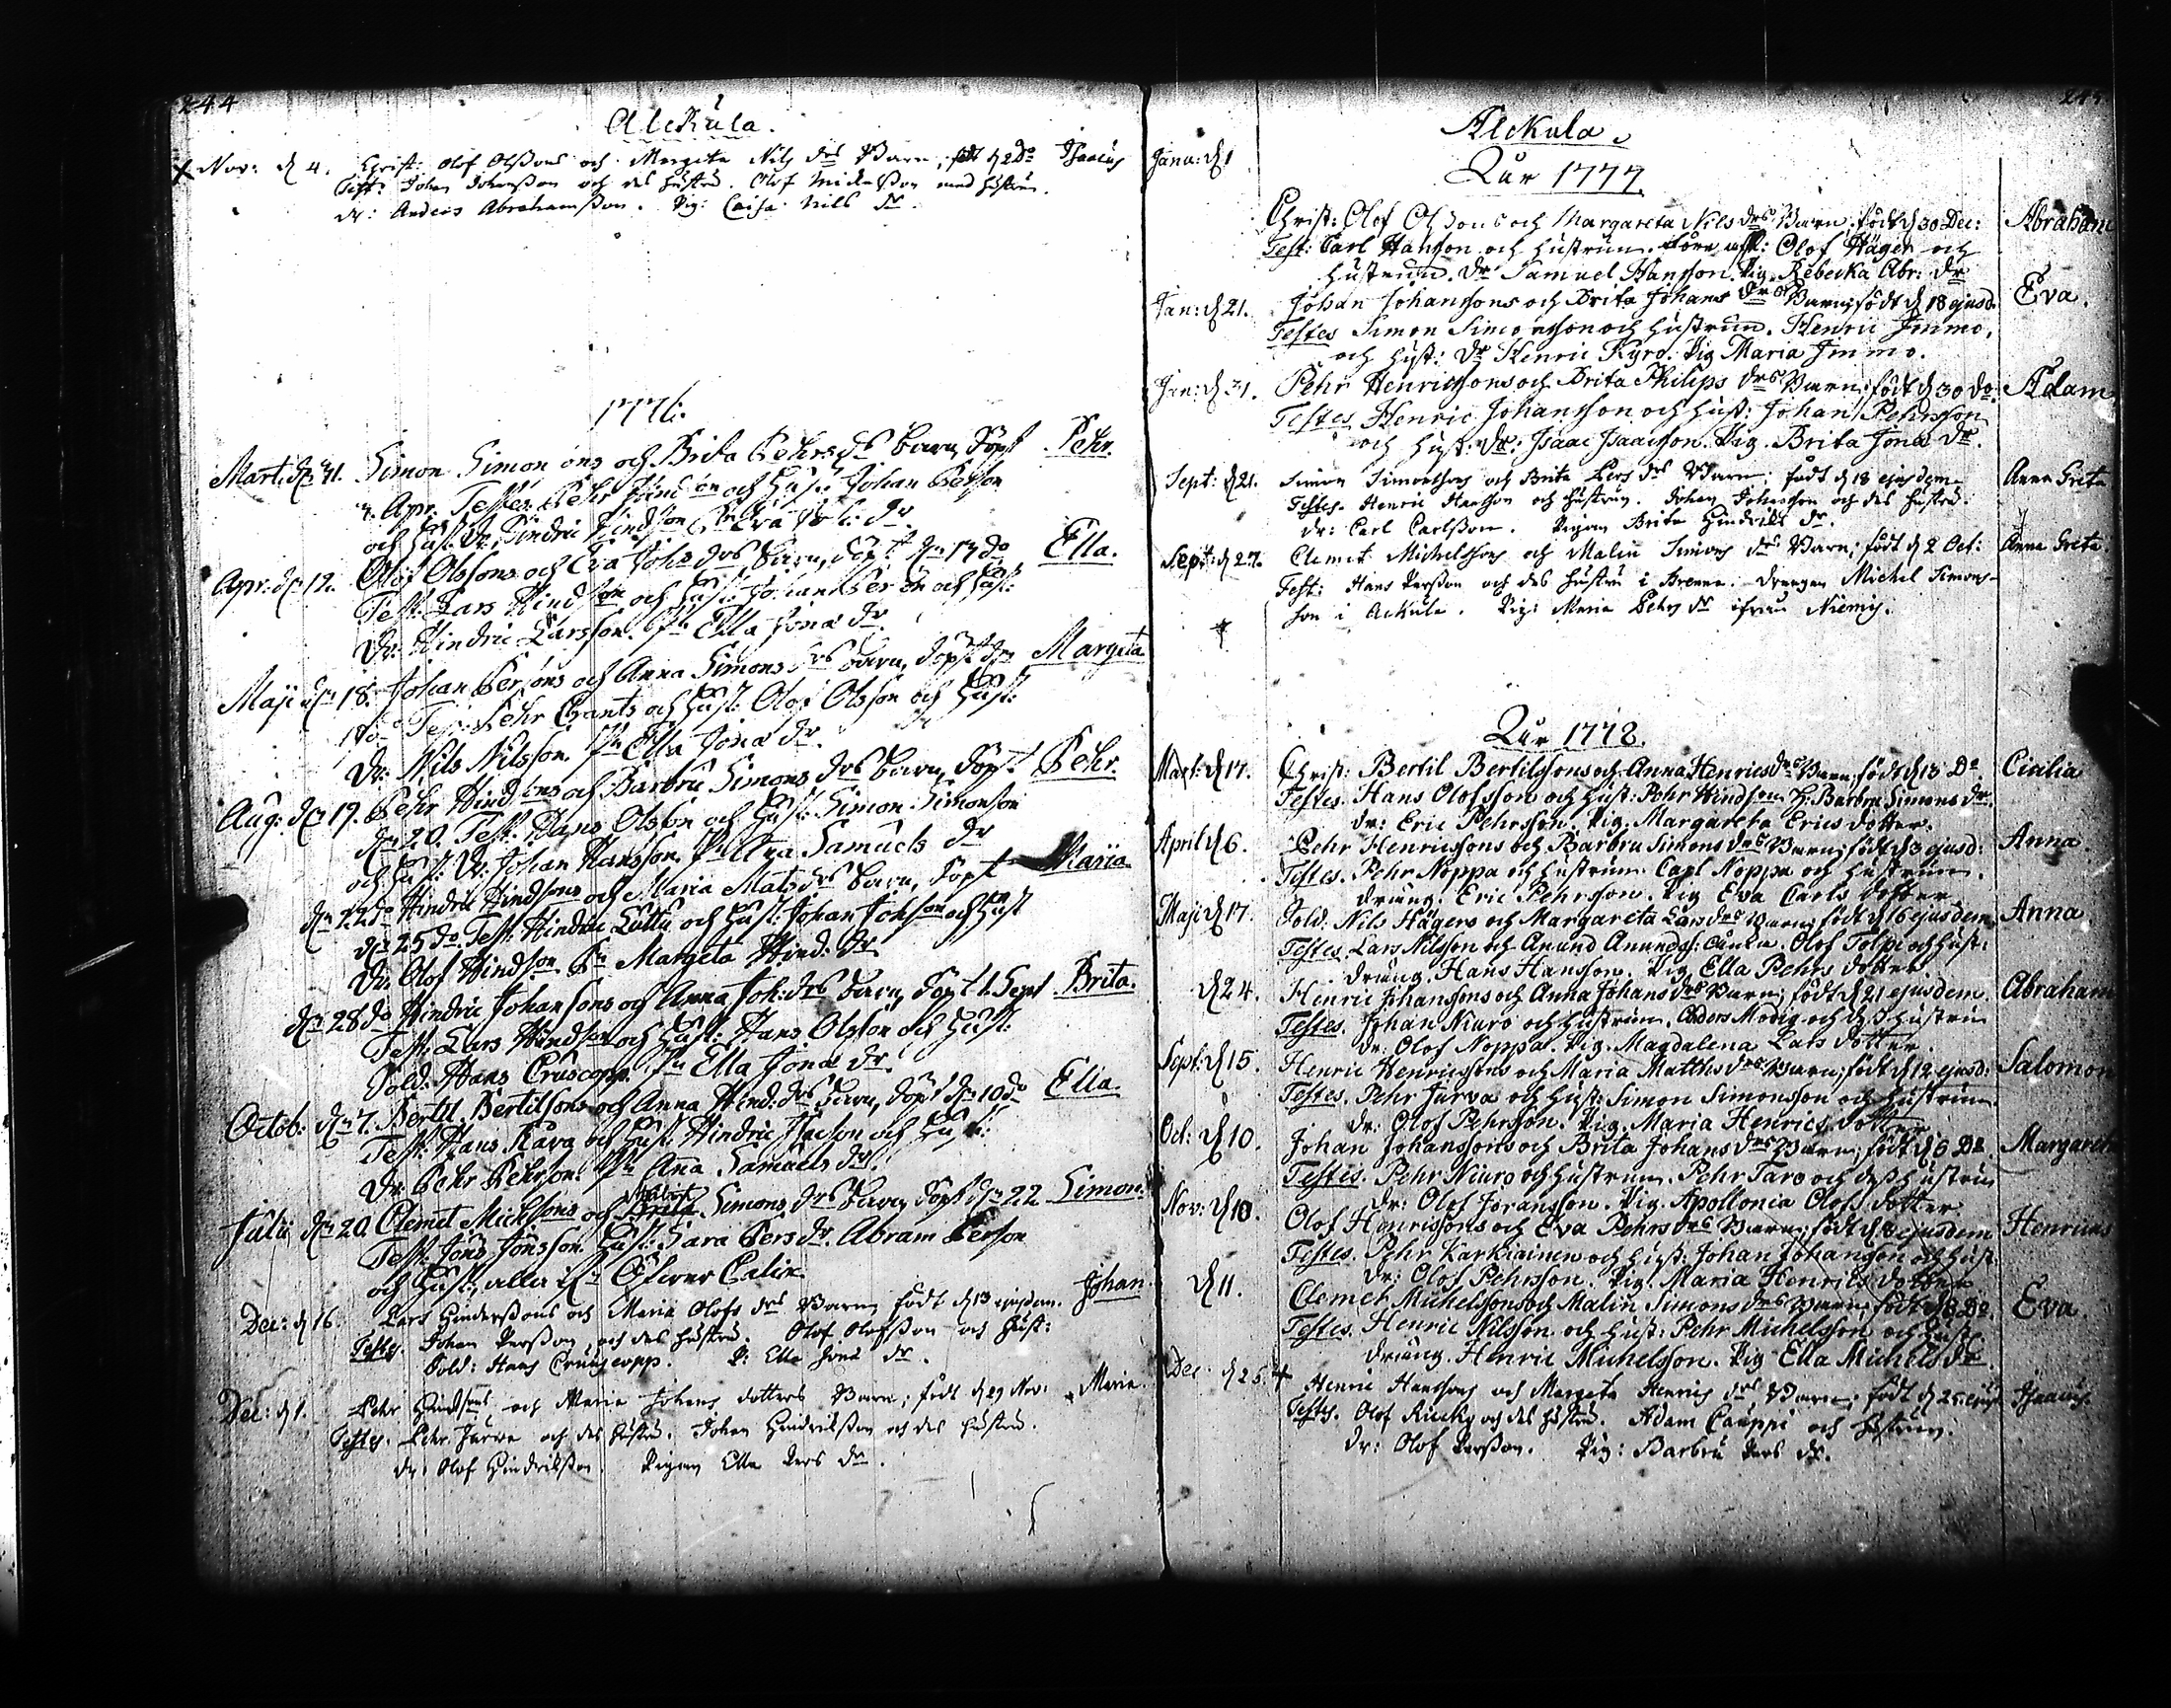 244
Alckula.
Nov: d 4. Christ: Olof Olssons och Margeta Nils drs Barn, född d 2 do Isacus
Test: Johan Johansson och des hustru. Olof Mickelsson med hustru.
dr: Anders Abrahamsson. Pig: Caisa Nils dr.
1776.
Mart. dn 31. Simon Simonsons och Brita Pehrs drs barn, döpt Pehr.
Apr. Testes: Pehr och Hust. Johan Person
och Hust. Dr. Hindric Hindson Eva dr.
Apr: dn 12. Olof Olssons och Eva Johs drs barn, döpt dn 13 do Ella.
Test: Lars Hindson och Hust: Johan Person och Hust:
Dr: Hindric Larsson. Pn Ella Jona dr.
Maji dn 18. Johan Persons och Anna Simons drs barn, döpt dn Margeta
do Test: Pehr och Hust. Olof Olsson och Hust:
Dr: Nils Nilsson. Pn Ella Jona dr.
Aug: dn 19. Pehr Hindsons och Barbru Simons drs barn, döpt Pehr.
dn 20. Test: Hans Olsson och Hust: Simon Simonson
och Hust: Dr: Johan Hansson. Pn Samuels dr
dn 22 do Hindric Hindsons och Maria Mats drs barn, döpt Maria.
dn 25 do Test: Hindric Luttu och Hust: Johan Johson och Hust
Dr: Olof Hindson Pn Margeta Hind: dr
dn 28 do Hindric Johansons och Anna Joh: drs barn, döpt 1 Sept Brita.
Test: Lars Hindson och Hust: Hans Olsson och Hust:
Sold: Hans Cruscopp. Pn Ella Jona dr.
Octob: dn 7. Bertil Bertilsons och Anna Hind: drs barn, döpt dn 10 do Ella.
Test: Hans Kava och Hust: Hindric Isacson och Hust:
Dr: Pehr Pehrson. Pn Ana Samuels dr.
Julii dn 20 Clemet Michelsons och Brita Simons drs barn, döpt dn 22 Simon.
Test: Jöns Jönsson Hust: Sara Pers dr. Abram Person
och Hust:, alla ifr: Öfver Calix.
Dec: d 16. Lars Hinderssons och Maria Olofs drs Barn född d 13 ejusdem. Johan.
Testes Johan Persson och des hustru. Olof Olofsson och Hust:
Sold: Hans Cruuscopp. P: Ella Jona dr.
Dec: d 1. Pehr Hindsons och Maria Johans dotters Barn; född d 29 Nov: Maria.
Testes. Pehr Jarva och des hustru. Johan Hendriksson och des hustru.
dr: Olof Hindriksson. Pigan Ella Pers dr.
Alckula.
Åhr 1777.
Janu: d 1 Christ: Olof Olssons och Margareta Nils drs Barn, född d 30 Dec: Abraham
Test: Carl Hansson och hustrun. Olof Häger och
hustrun. Dr Samuel Hansson. Pig. Rebecka Abr: dr
Jan: d 21. Johan Johanssons och Brita Johans drs Barn; född d 18 ejusd. Eva.
Testes Simon Simonsson och hustrun. Henric Immo,
och Hust: Dr Henric Kyrö. Pig Maria Immo.
Jan: d 31. Pehr Henricssons och Brita Philips drs Barn; född d 30 do. Adam
Testes Henric Johansson och hust: Johan Pehrsson
och hust: Dr: Isaac Isaacsson. Pig. Brita Jona dr.
Sept: d 21. Simon Simonssons och Brita Pers drs Barn; född d 18 ejusdem Anna Greta
Testes. Henric Hansson och hustrun. Johan Johansson och des hustru.
dr: Carl Carlsson. Pigan Brita Hindriks dr.
Sept: d 27. Clemet Michelssons och Malin Simons drs Barn; född d 2 Oct: Anna Greta.
Test: Hans Persson och des hustru i Brenna. Drengen Michel Simons-
son i Ackula. Pig: Maria Pehrs dr ifrån Niemis.
Åhr 1778.
Mart: d 17. Christ: Bertil Bertilssons och Anna Henrics drs Barn; född d 13 Do. Cicilia
Testes. Hans Olofsson och Hust: Pehr Hindson H: Barbru Simons dr.
dr: Eric Pehrsson. Pig. Margareta Erics dotter.
April d 6. Pehr Henricssons och Barbru Simons drs Barn; född d 3 ejusd: Anna.
Testes. Pehr Noppa och hustrun. Carl Noppa och hustrun.
dräng. Eric Pehrsson. Pig Eva Carls dotter
Maji d 17. Sold: Nils Hägers och Margareta Lars drs Barn; född d 16 ejusdem Anna
Testes. Lars Nilsson och Anund Anunds: Olof Tolpi och hust:
dräng. Hans Hansson. Pig Ella Pehrs dotter.
d 24. Henric Johanssons och Anna Johans drs Barn; född d 21 ejusdem Abraham
Testes. Johan Niuro och hustrun. Anders Modig och dess hustru
dr: Olof Noppa. Pig. Magdalena Lars dotter
Sept: d 15. Henric Henricssons och Maria Matths drs Barn; född d 12 ejusd: Salomon
Testes. Pehr Jarva och Hust: Simon Simonsson och hustrun.
dr: Olof Pehrsson. Pig. Maria Henrics dotter
Oct: d 10. Johan Johanssons och Brita Johans drs Barn; född d 6 Do. Margareta
Testes. Pehr Niuro och hustrun. Pehr Taro och dess hustru
dr: Olof Joransson. Pig. Apollonia Olofs dotter
Nov: d 10. Olof Henricssons och Eva Pehrs drs Barn; född d 8 ejusdem Henricus
Testes. Pehr Karkiainen och hust: Johan Johanson och hust
dr: Olof Pehrsson. Pig. Maria Henrics dotter
d 11. Clemet Michelssons och Malin Simons drs Barn; född d 8 Do. Eva
Testes. Henric Nilsson och hust: Pehr Michelsson och hust
dräng. Henric Michelsson. Pig Ella Michels dr.
Dec: d 25 Henric Hanssons och Margeta Henrics drs Barn; född d 25 ejusd Isaacus.
Testes. Olof Rucky och des hustru. Adam Cauppi och hustrun.
Dr: Olof Persson. Pig: Barbru Pers dr.